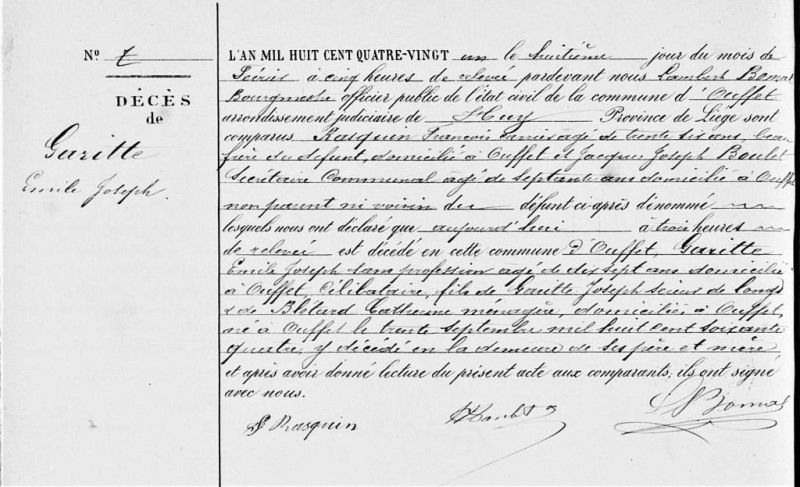 N° 7
DÉCÈS
de
Garitte
Emile Joseph.
L'AN MIL HUIT CENT QUATRE-VINGT un le huitième jour du mois de
Février à cinq heures de relevée pardevant nous Lambert Bomal
Bourgmestre officier public de l'état civil de la commune d'Ouffet
arrondissement judiciaire de Huy Province de Liège sont
comparus Rasquin François âgé de trente six ans, beau
frère du defunt, domicilié à Ouffet et Jacques Joseph Boulet
Secrétaire Communal agé de septante ans domicilié à Ouffet
non parent ni voisin du défunt ci-après dénommé
lesquels nous ont déclaré que aujourd'hui à trois heures
de relevée est décédé en cette commune d'Ouffet, Garitte
Emile Joseph sans profession agé de dix sept ans domicilié
à Ouffet, Célibataire, fils de Garitte Joseph scieur de long
& de Blétard Catherine ménagère, domiciliés à Ouffet,
né à Ouffet le trente septembre mil huit cent soixante
quatre, y décédé en la demeure de ses père et mère
et après avoir donné lecture du présent acte aux comparants, ils ont signé
avec nous.
Rasquin Bomal